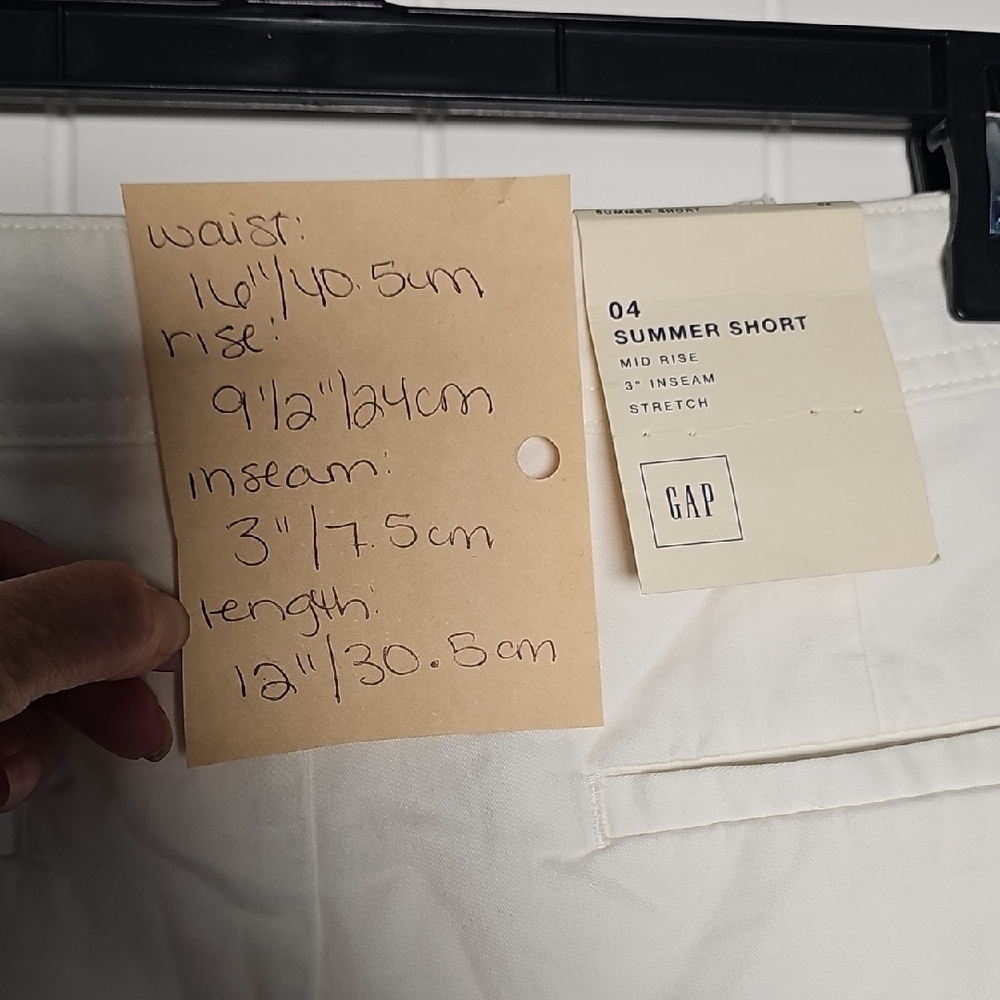 waist:
16"/40.5cm
rise:
9 1/2"/24cm
inseam:
3"/7.5cm
length:
12"/30.5cm
SUMMER SHORT 04
04
SUMMER SHORT
MID RISE
3" INSEAM
STRETCH
GAP